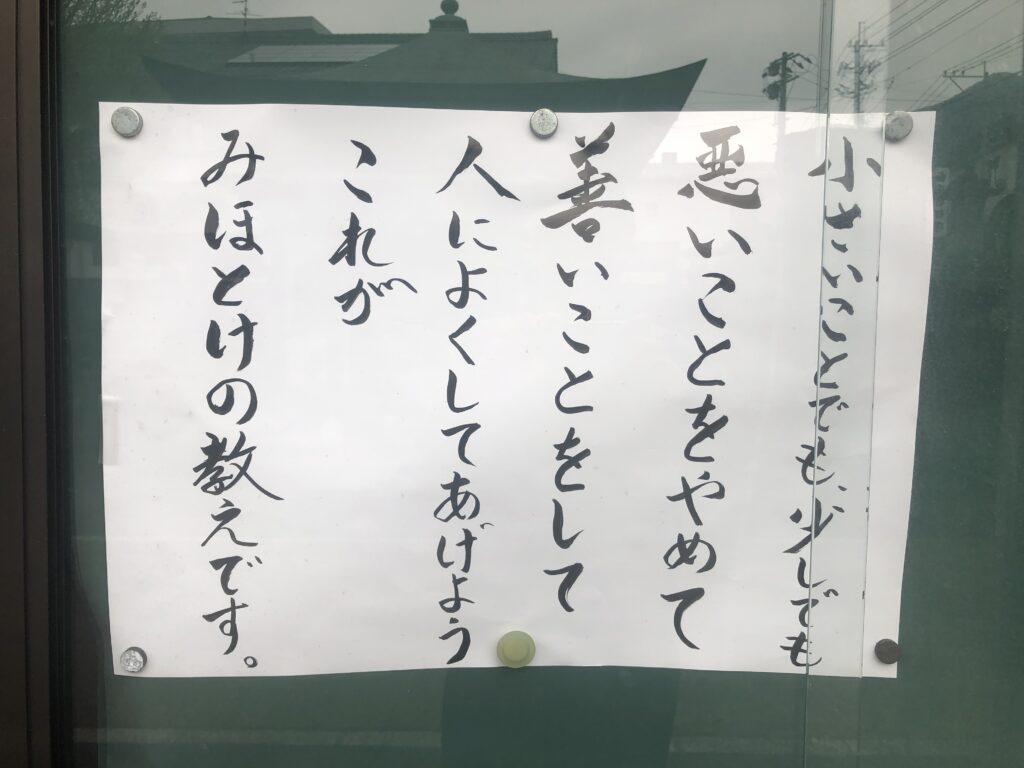 小さいことでも、少しでも
悪いことをやめて
善いことをして
人によくしてあげよう
これが
みほとけの教えです。